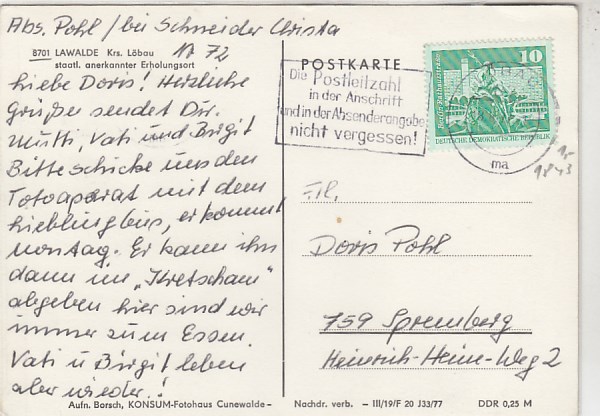 Abs. Pohl / bei Schneider Christa
8701 LAWALDE Krs. Löbau
Nr 72
staatl. anerkannter Erholungsort
Liebe Doris! Herzliche
Grüße sendet Dir
Mutti, Vati und Birgit
Bitte schicke uns den
Fotoaparat mit dem
Lieblingbus, er kommt
Montag. Er kann ihn
dann im "Kretscham"
abgeben hier sind wir
immer zum Essen.
Vati u Birgit leben
aber wieder!
Aufn. Borsch, KONSUM-Fotohaus Cunewalde -
POSTKARTE
Die Postleitzahl
in der Anschrift
und in der Absenderangabe
nicht vergessen!
10
DEUTSCHE DEMOKRATISCHE REPUBLIK
ma
1843
Frl.
Doris Pohl
759 Spremberg
Heinrich-Heine-Weg 2
Nachdr. verb. - III/19/F 20 J33/77
DDR 0,25 M